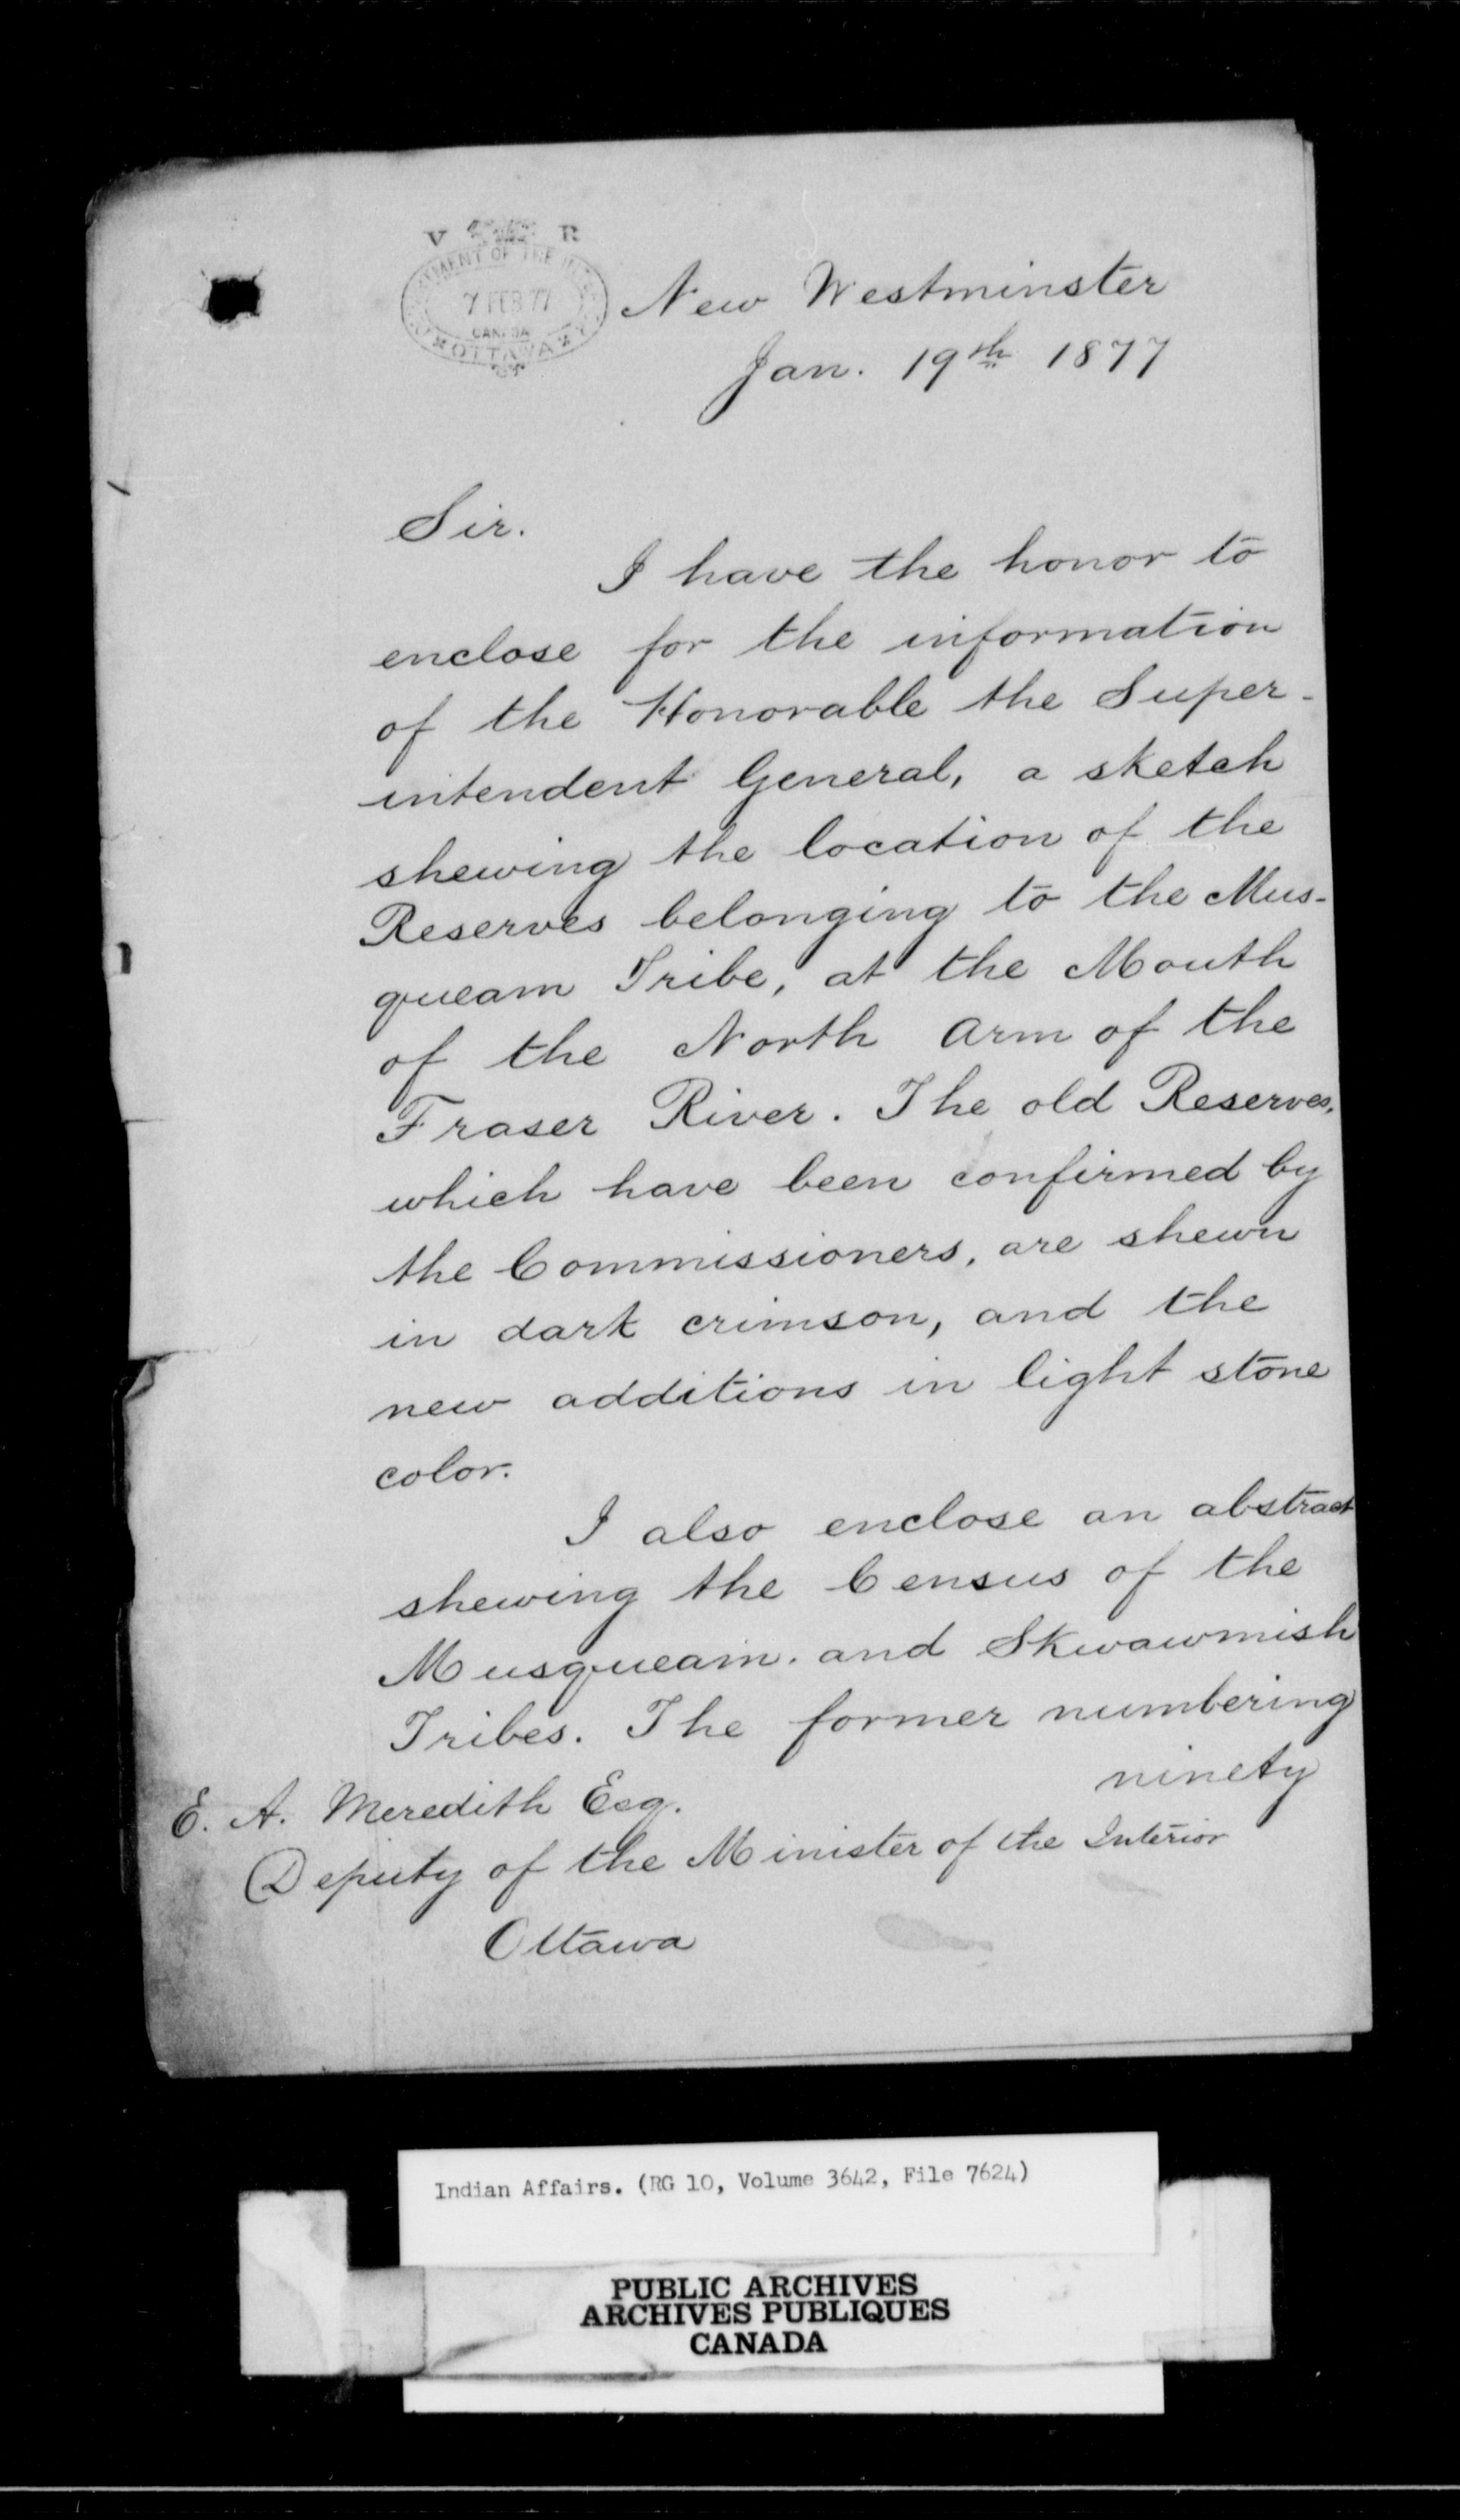 V R
DEPARTMENT OF THE INTERIOR
7 FEB 77
CANADA
OTTAWA
New Westminster
Jan. 19th 1877
Sir.
I have the honor to
enclose for the information
of the Honorable the Super-
intendent General, a sketch
shewing the location of the
Reserves belonging to the Mus-
queam Tribe, at the Mouth
of the North Arm of the
Fraser River. The old Reserves,
which have been confirmed by
the Commissioners, are shewn
in dark crimson, and the
new additions in light stone
color.
I also enclose an abstract
shewing the Census of the
Musqueam. and Skwawmish
Tribes. The former numbering
ninety
E. A. Meredith Esq.
Deputy of the Minister of the Interior
Ottawa
Indian Affairs. (RG 10, Volume 3642, File 7624)
PUBLIC ARCHIVES
ARCHIVES PUBLIQUES
CANADA